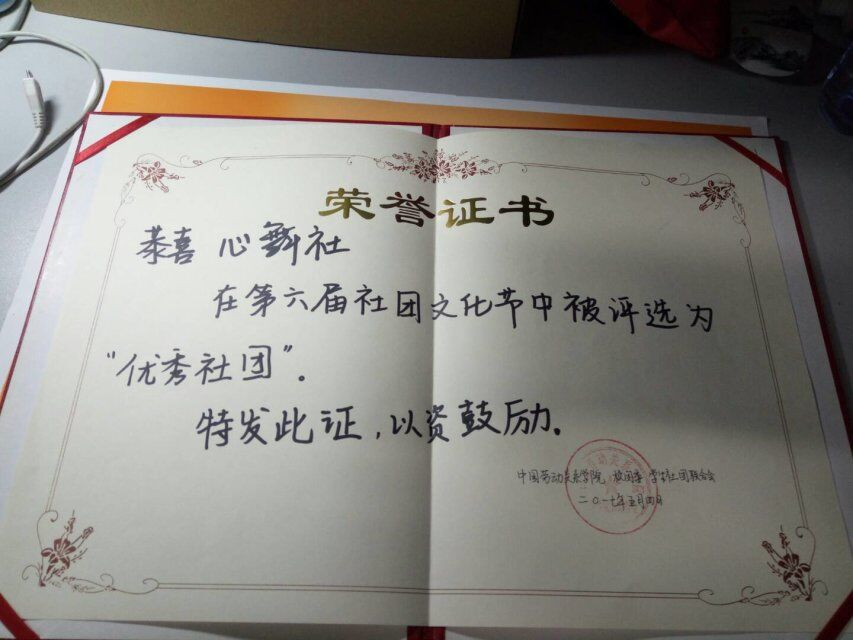 荣誉证书
恭喜 心舞社
在第六届社团文化节中被评选为
“优秀社团”.
特发此证,以资鼓励.
中国劳动关系学院 校团委 学生社团联合会
二〇一七年五月四日